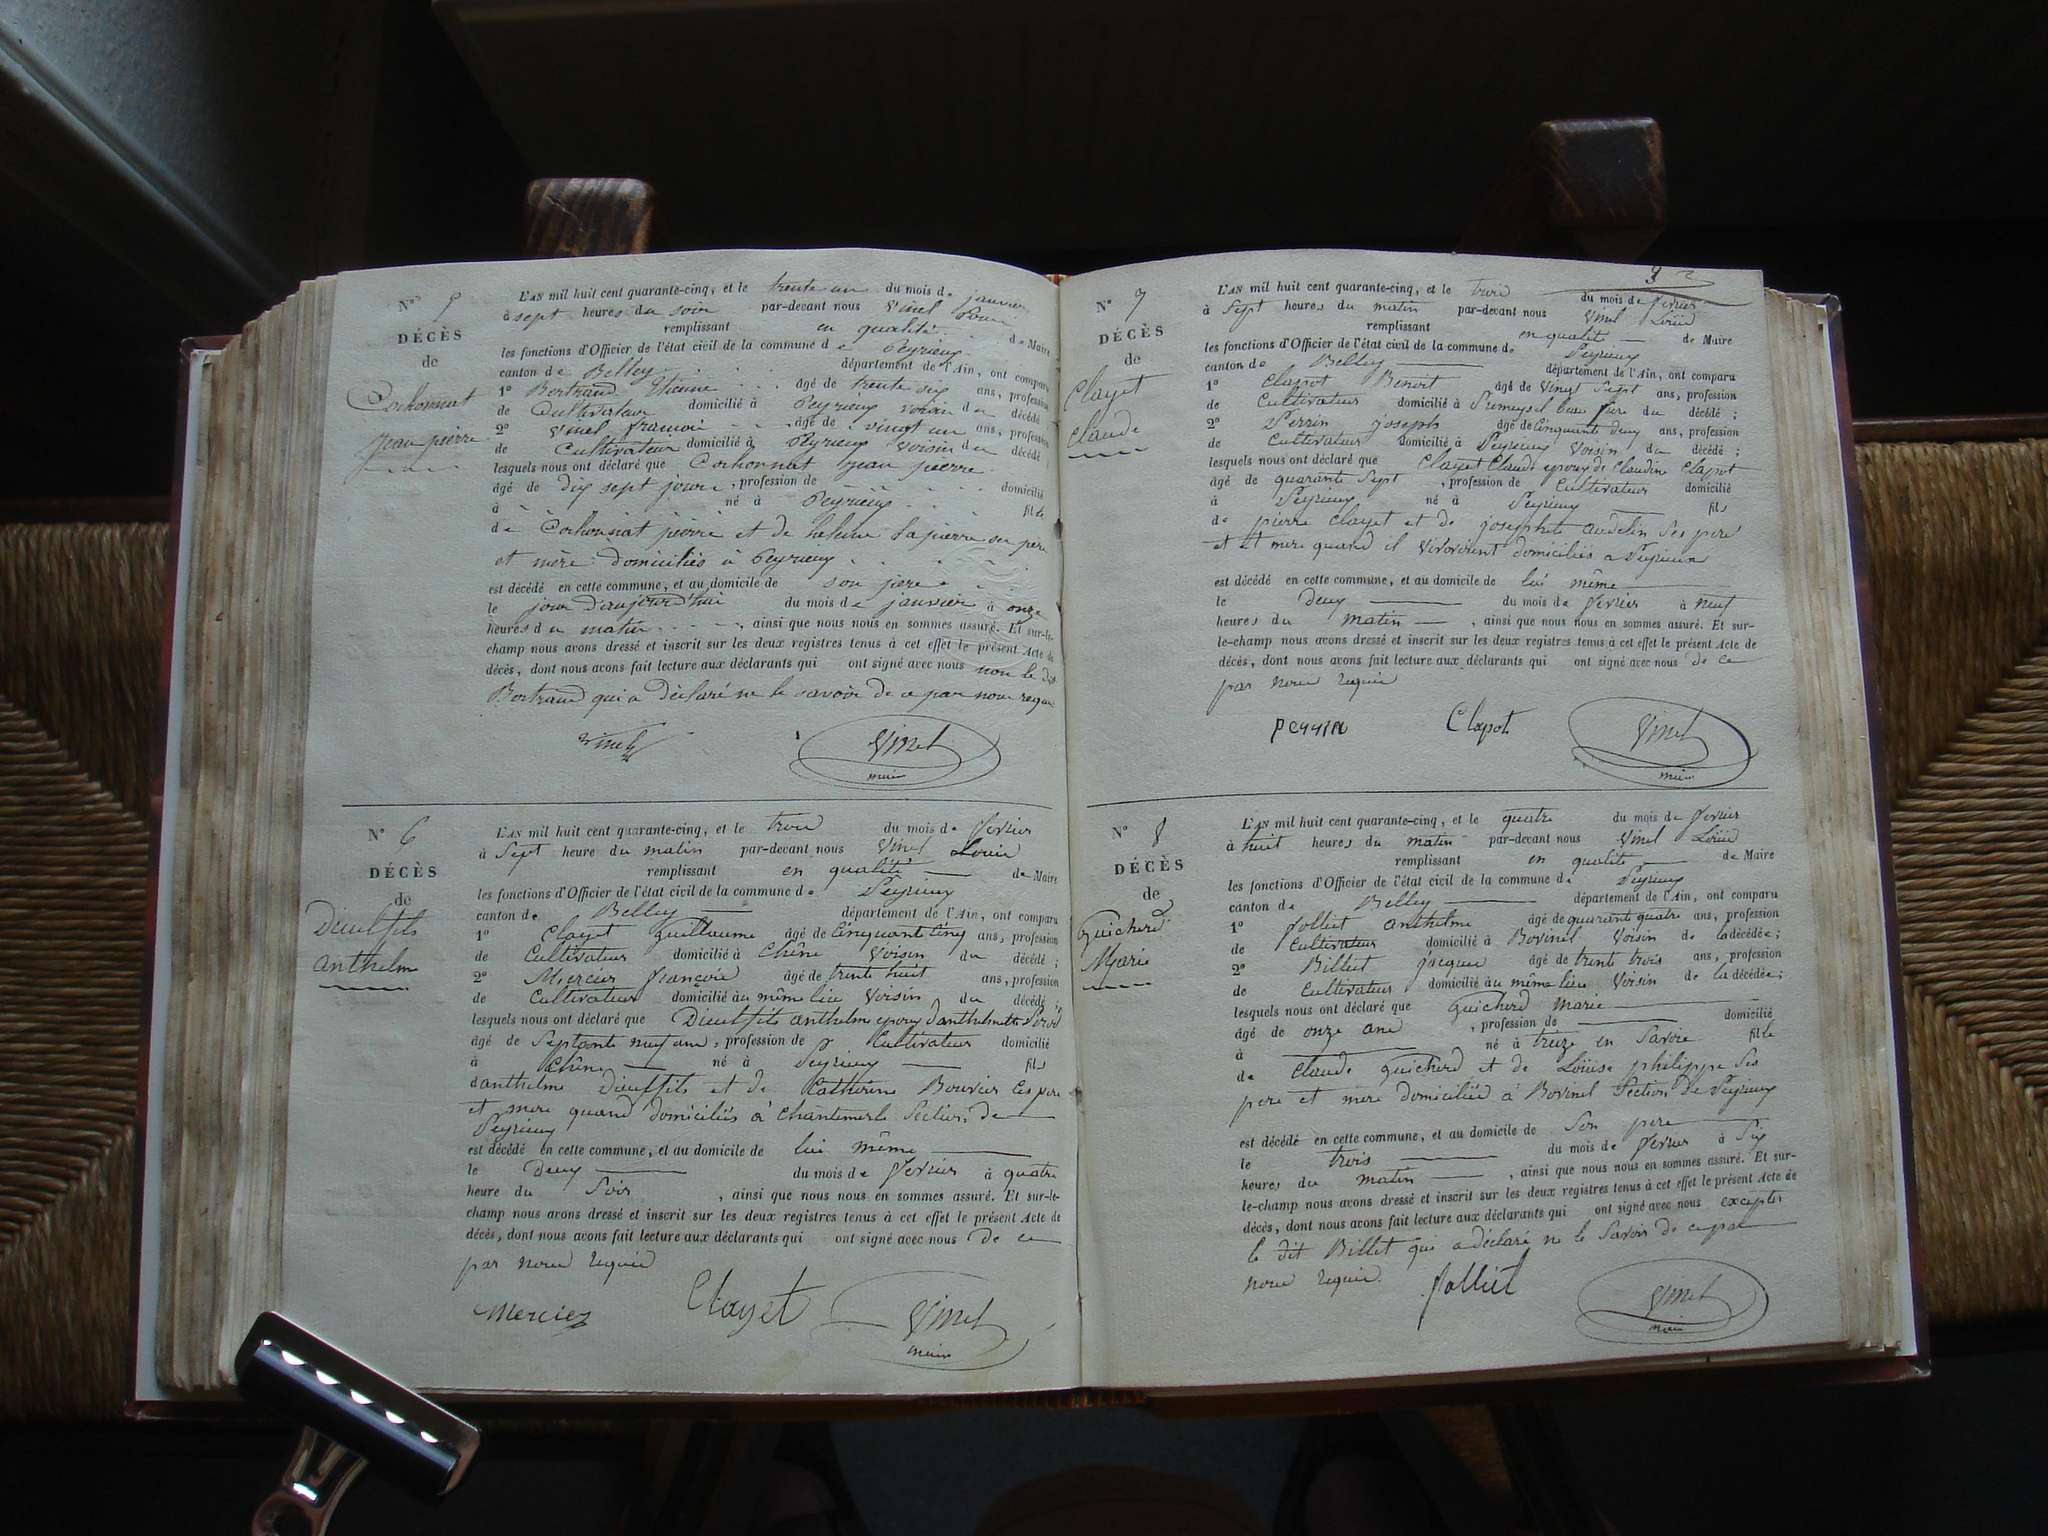 N° 5
DÉCÈS
de
Corbonnat
Jean pierre
L'AN mil huit cent quarante-cinq, et le trente un du mois de janvier
à sept heures du soir par-devant nous Vinel Louis
remplissant en qualité de Maire
les fonctions d'Officier de l'état civil de la commune de Peyrieux
canton de Belley département de l'Ain, ont comparu
1° Bertrand Etienne âgé de trente six ans, profession
de Cultivateur domicilié à Peyrieux voisin du décédé
2° Vinel francois âgé de vingt un ans, profession
de Cultivateur domicilié à Peyrieux voisin du décédé
lesquels nous ont déclaré que Corbonnat Jean pierre
âgé de dix sept jours, profession de domicilié
à né à Peyrieux fils
de Corbonnat pierre et de helene Lapierre ses pere
et mère domiciliés à Peyrieux
est décédé en cette commune, et au domicile de son pere
le jour d'aujourd'hui du mois de janvier à onze
heures du matin, ainsi que nous nous en sommes assuré. Et sur-le-
champ nous avons dressé et inscrit sur les deux registres tenus à cet effet le présent Acte de
décès, dont nous avons fait lecture aux déclarants qui ont signé avec nous non le dit
Bertrand qui a déclaré ne le savoir de ce par nous requis
Vinel Vinel
maire
N° 6
DÉCÈS
de
Dieulfils
anthelm
L'AN mil huit cent quarante-cinq, et le trois du mois de fevrier
à Sept heure du matin par-devant nous Vinel Louis
remplissant en qualité de Maire
les fonctions d'Officier de l'état civil de la commune de Peyrieux
canton de Belley département de l'Ain, ont comparu
1° Clayet guillaume âgé de Cinquante Cinq ans, profession
de Cultivateur domicilié à Chêne Voisin du décédé;
2° Mercier françois âgé de trente huit ans, profession
de Cultivateur domicilié au même lieu Voisin du décédé;
lesquels nous ont déclaré que Dieulfils anthelme epoux d'anthelmette
âgé de Septante neuf ans, profession de Cultivateur domicilié
à Chêne né à Peyrieux fils
d'anthelme Dieulfils et de Catherine Bouvier Ses pere
et mere quand domiciliés à Chantemerle Section de
Peyrieux
est décédé en cette commune, et au domicile de lui même
le Deux du mois de fevrier à quatre
heure du Soir, ainsi que nous nous en sommes assuré. Et sur-le-
champ nous avons dressé et inscrit sur les deux registres tenus à cet effet le présent Acte de
décès, dont nous avons fait lecture aux déclarants qui ont signé avec nous de ce
par nous requis
Mercier Clayet Vinel
maire
3
N° 7
DÉCÈS
de
Clayet
Claude
L'AN mil huit cent quarante-cinq, et le trois du mois de fevrier
à Sept heures du matin par-devant nous Vinel Louis
remplissant en qualité de Maire
les fonctions d'Officier de l'état civil de la commune de Peyrieux
canton de Belley département de l'Ain, ont comparu
1° Clapot Benoit âgé de Vingt Sept ans, profession
de Cultivateur domicilié à Premeysel beau frere du décédé;
2° Perrin joseph âgé de Cinquante deux ans, profession
de Cultivateur domicilié à Peyrieux Voisin du décédé;
lesquels nous ont déclaré que Clayet Claude epoux de Claudine Clapot
âgé de quarante Sept, profession de Cultivateur domicilié
à Peyrieux né à Peyrieux fils
de pierre Clayet et de josephte audelin Ses pere
et et mere quand il domiciliés a Peyrieux
est décédé en cette commune, et au domicile de lui même
le deux du mois de fevrier à neuf
heures du matin, ainsi que nous nous en sommes assuré. Et sur-
le-champ nous avons dressé et inscrit sur les deux registres tenus à cet effet le présent Acte de
décès, dont nous avons fait lecture aux déclarants qui ont signé avec nous de ce
par nous requis
perrin Clapot Vinel
maire
N° 8
DÉCÈS
de
Guicherd
Marie
L'AN mil huit cent quarante-cinq, et le quatre du mois de fevrier
à huit heures du matin par-devant nous Vinel Louis
remplissant en qualité de Maire
les fonctions d'Officier de l'état civil de la commune de Peyrieux
canton de Belley département de l'Ain, ont comparu
1° Jolliet anthelme âgé de quarante quatre ans, profession
de Cultivateur domicilié à Bovinel Voisin de la décédée;
2° Billiet jacques âgé de trente trois ans, profession
de Cultivateur domicilié au même lieu Voisin de la décédée;
lesquels nous ont déclaré que Guicherd Marie
âgé de onze ans, profession de domicilié
à né à treize en Savoie fille
de Claude Guicherd et de Louise philippe Ses
pere et mere domiciliés à Bovinel Section de Peyrieux
est décédé en cette commune, et au domicile de Son pere
le trois du mois de fevrier à Six
heures du matin, ainsi que nous nous en sommes assuré. Et sur-
le-champ nous avons dressé et inscrit sur les deux registres tenus à cet effet le présent Acte de
décès, dont nous avons fait lecture aux déclarants qui ont signé avec nous excepter
le dit Billet qui a déclaré ne le Savoir de ce par
nous requis. Jolliet Vinel
maire